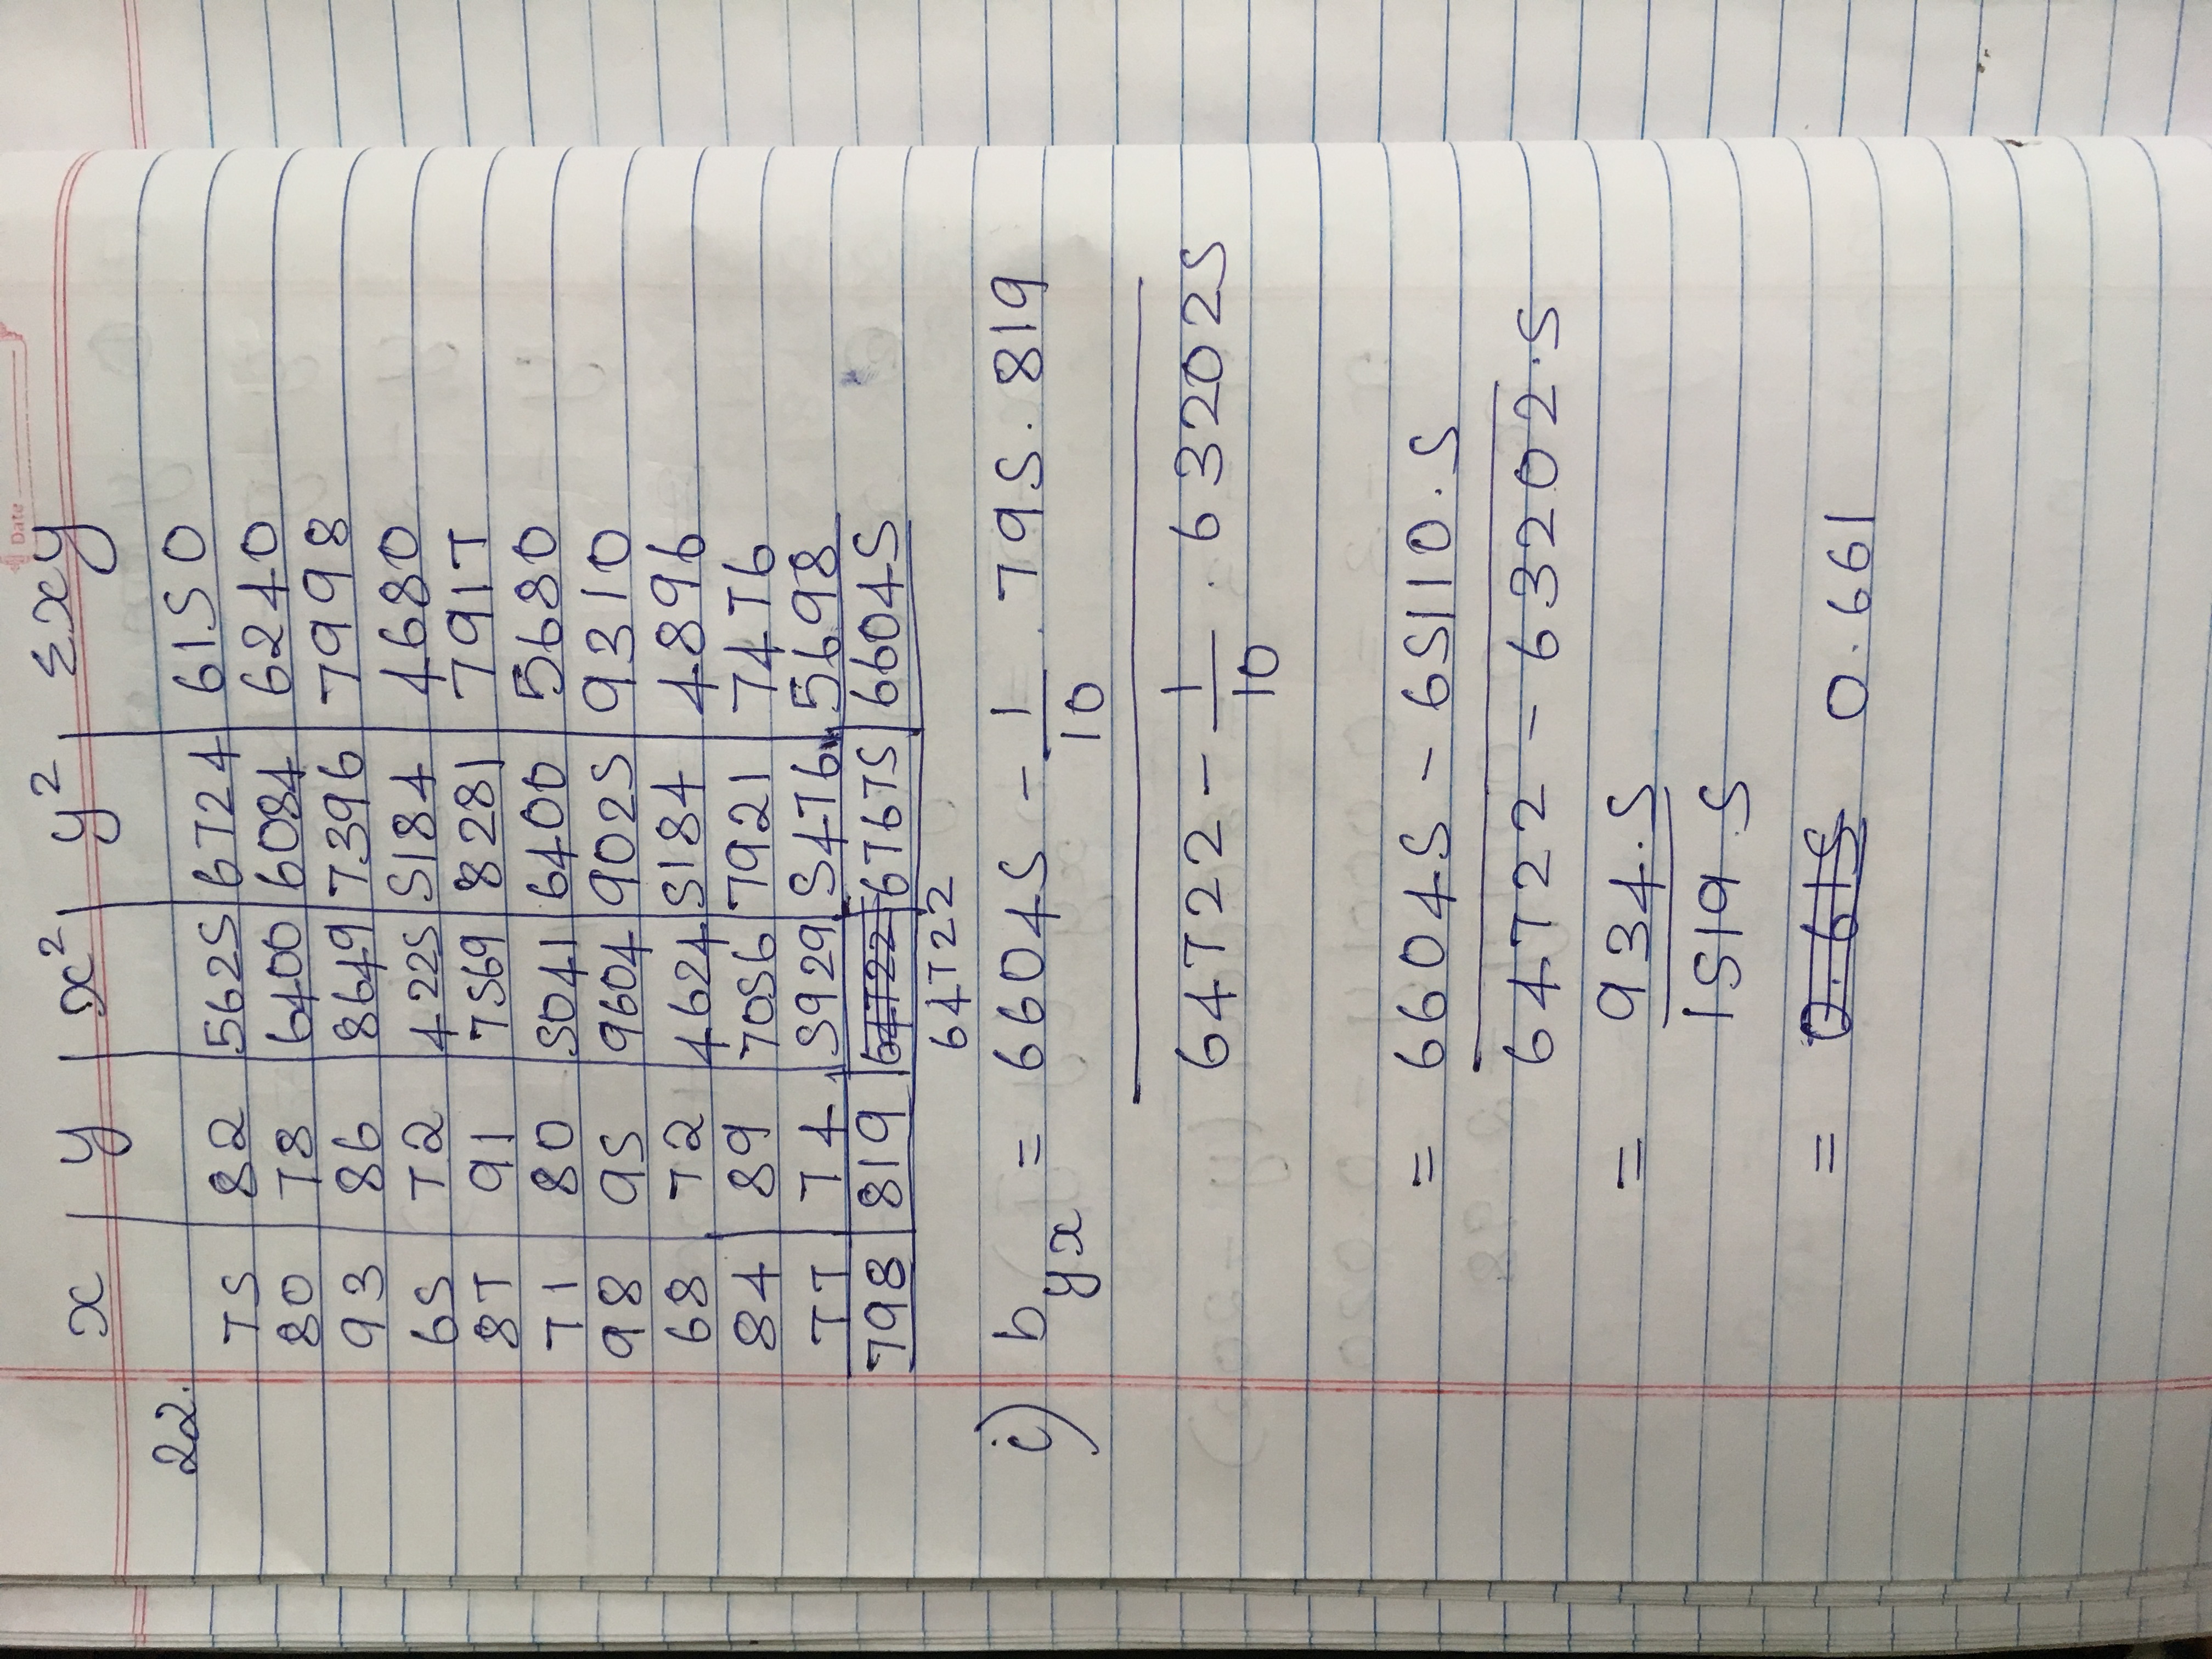 Date
x y x² y² Σxy
22.
75 82 5625 6724 6150
80 78 6400 6084 6240
93 86 8649 7396 7998
65 72 4225 5184 4680
87 91 7569 8281 7917
71 80 5041 6400 5680
98 95 9604 9025 9310
68 72 4624 5184 4896
84 89 7056 7921 7476
77 74 5929 5476 5698
798 819 64722 67675 66045
64722
i) b_yx = 66045 - 1/10 . 795. 819
64722 - 1/10 . 632025
= 66045 - 65110.5
64722 - 63202.5
= 934.5
1519.5
= 0.615 0.661